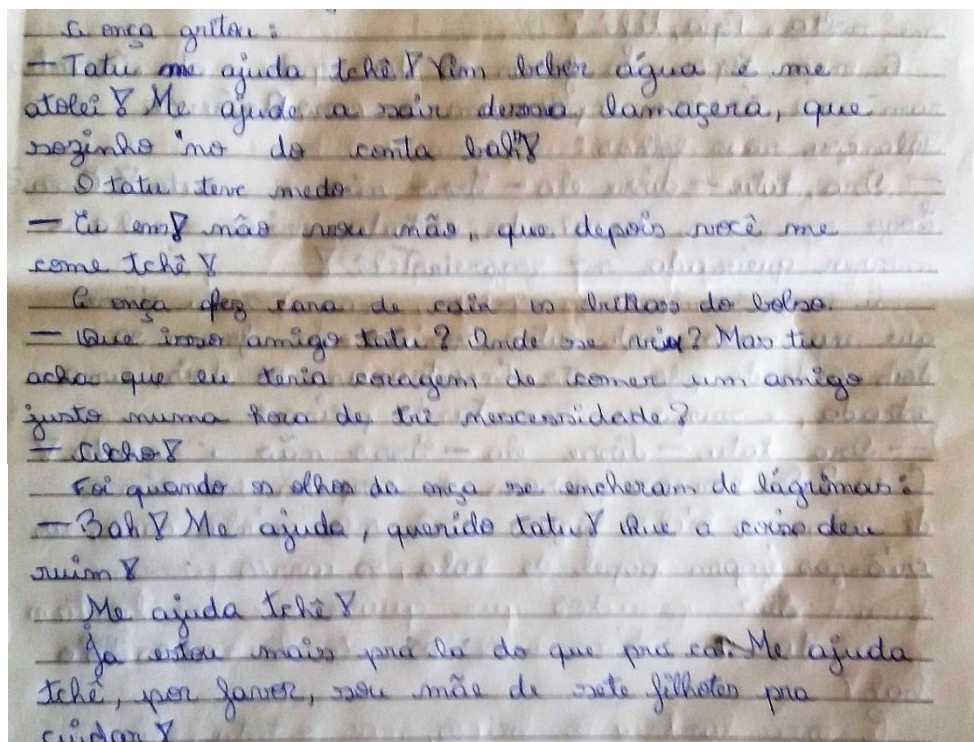 A onça gritou:
— Tatu me ajuda tchê! Vim beber água e me
atolei! Me ajude a sair dessa lamaçera, que
sozinho no do conta bah!
O tatu teve medo
— Eu em! não vou não, que depois você me
come tchê!
A onça fez cara de cair os butiás do bolso.
— Que isso amigo tatu? Onde se viu? Mas tu
acha que eu teria coragem de comer um amigo
justo numa hora de tri nescessidade?
— Acho!
Foi quando os olhos da onça se encheram de lágrimas:
— Bah! Me ajuda, querido tatu! Que a coisa deu
ruim!
Me ajuda tchê!
Ja estou mais pra lá do que pra cá. Me ajuda
tchê, por favor, sou mãe de sete filhotes pra
cuidar!